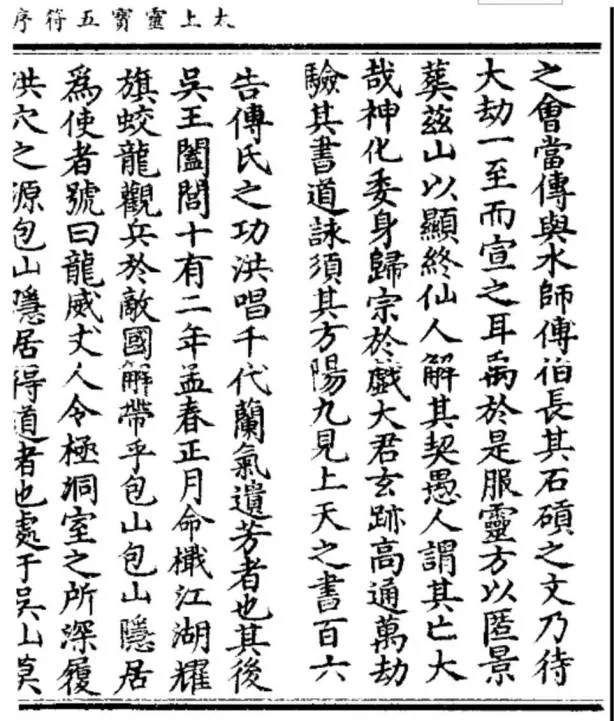 太上靈寳五符序
之會當傳與水師傅伯長其石磧之文乃待
大劫一至而宣之耳禹於是服靈方以匿景
葬茲山以顯終仙人解其契愚人謂其亡大
哉神化委身歸宗於戲大君玄跡高通萬劫
驗其書道詠須其方陽九見上天之書百六
告傳氏之功洪唱千代蘭氣遺芳者也其後
吳王闔閭十有二年孟春正月命檝江湖耀
旗蛟龍觀兵於敵國解帶乎包山包山隱居
爲使者號曰龍威丈人令極洞室之所深履
洪穴之源包山隱居得道者也處于吳山莫